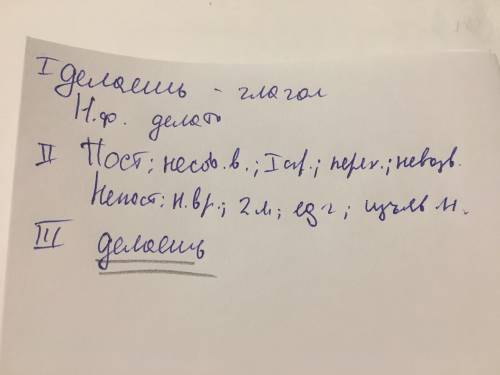 I делаешь - глагол
Н.ф. делать
II Пост: несов.в.; I спр.; перех.; невозв.
Непост: н.вр.; 2 л.; ед.ч; изъяв н.
III делаешь